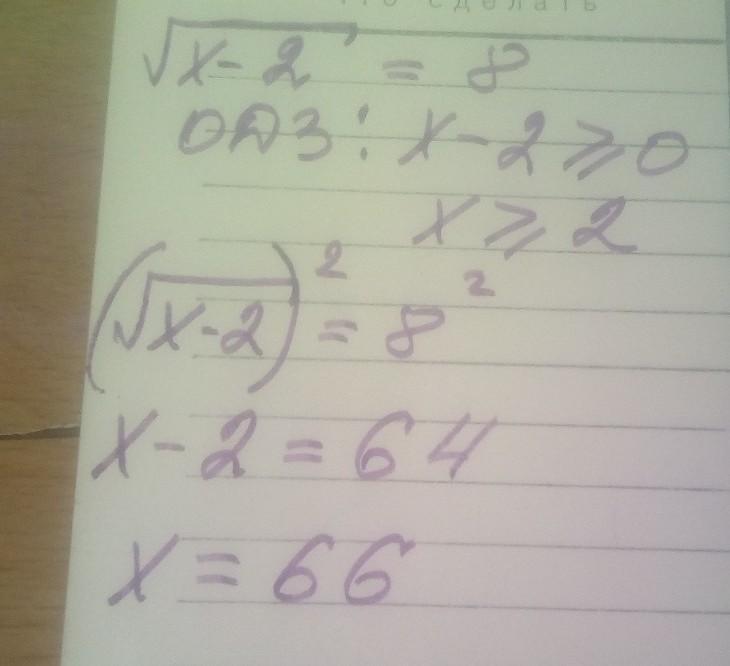 что сделать
√(x-2) = 8
ОДЗ: x-2 ⩾ 0
x ⩾ 2
(√(x-2))² = 8²
x-2 = 64
x = 66